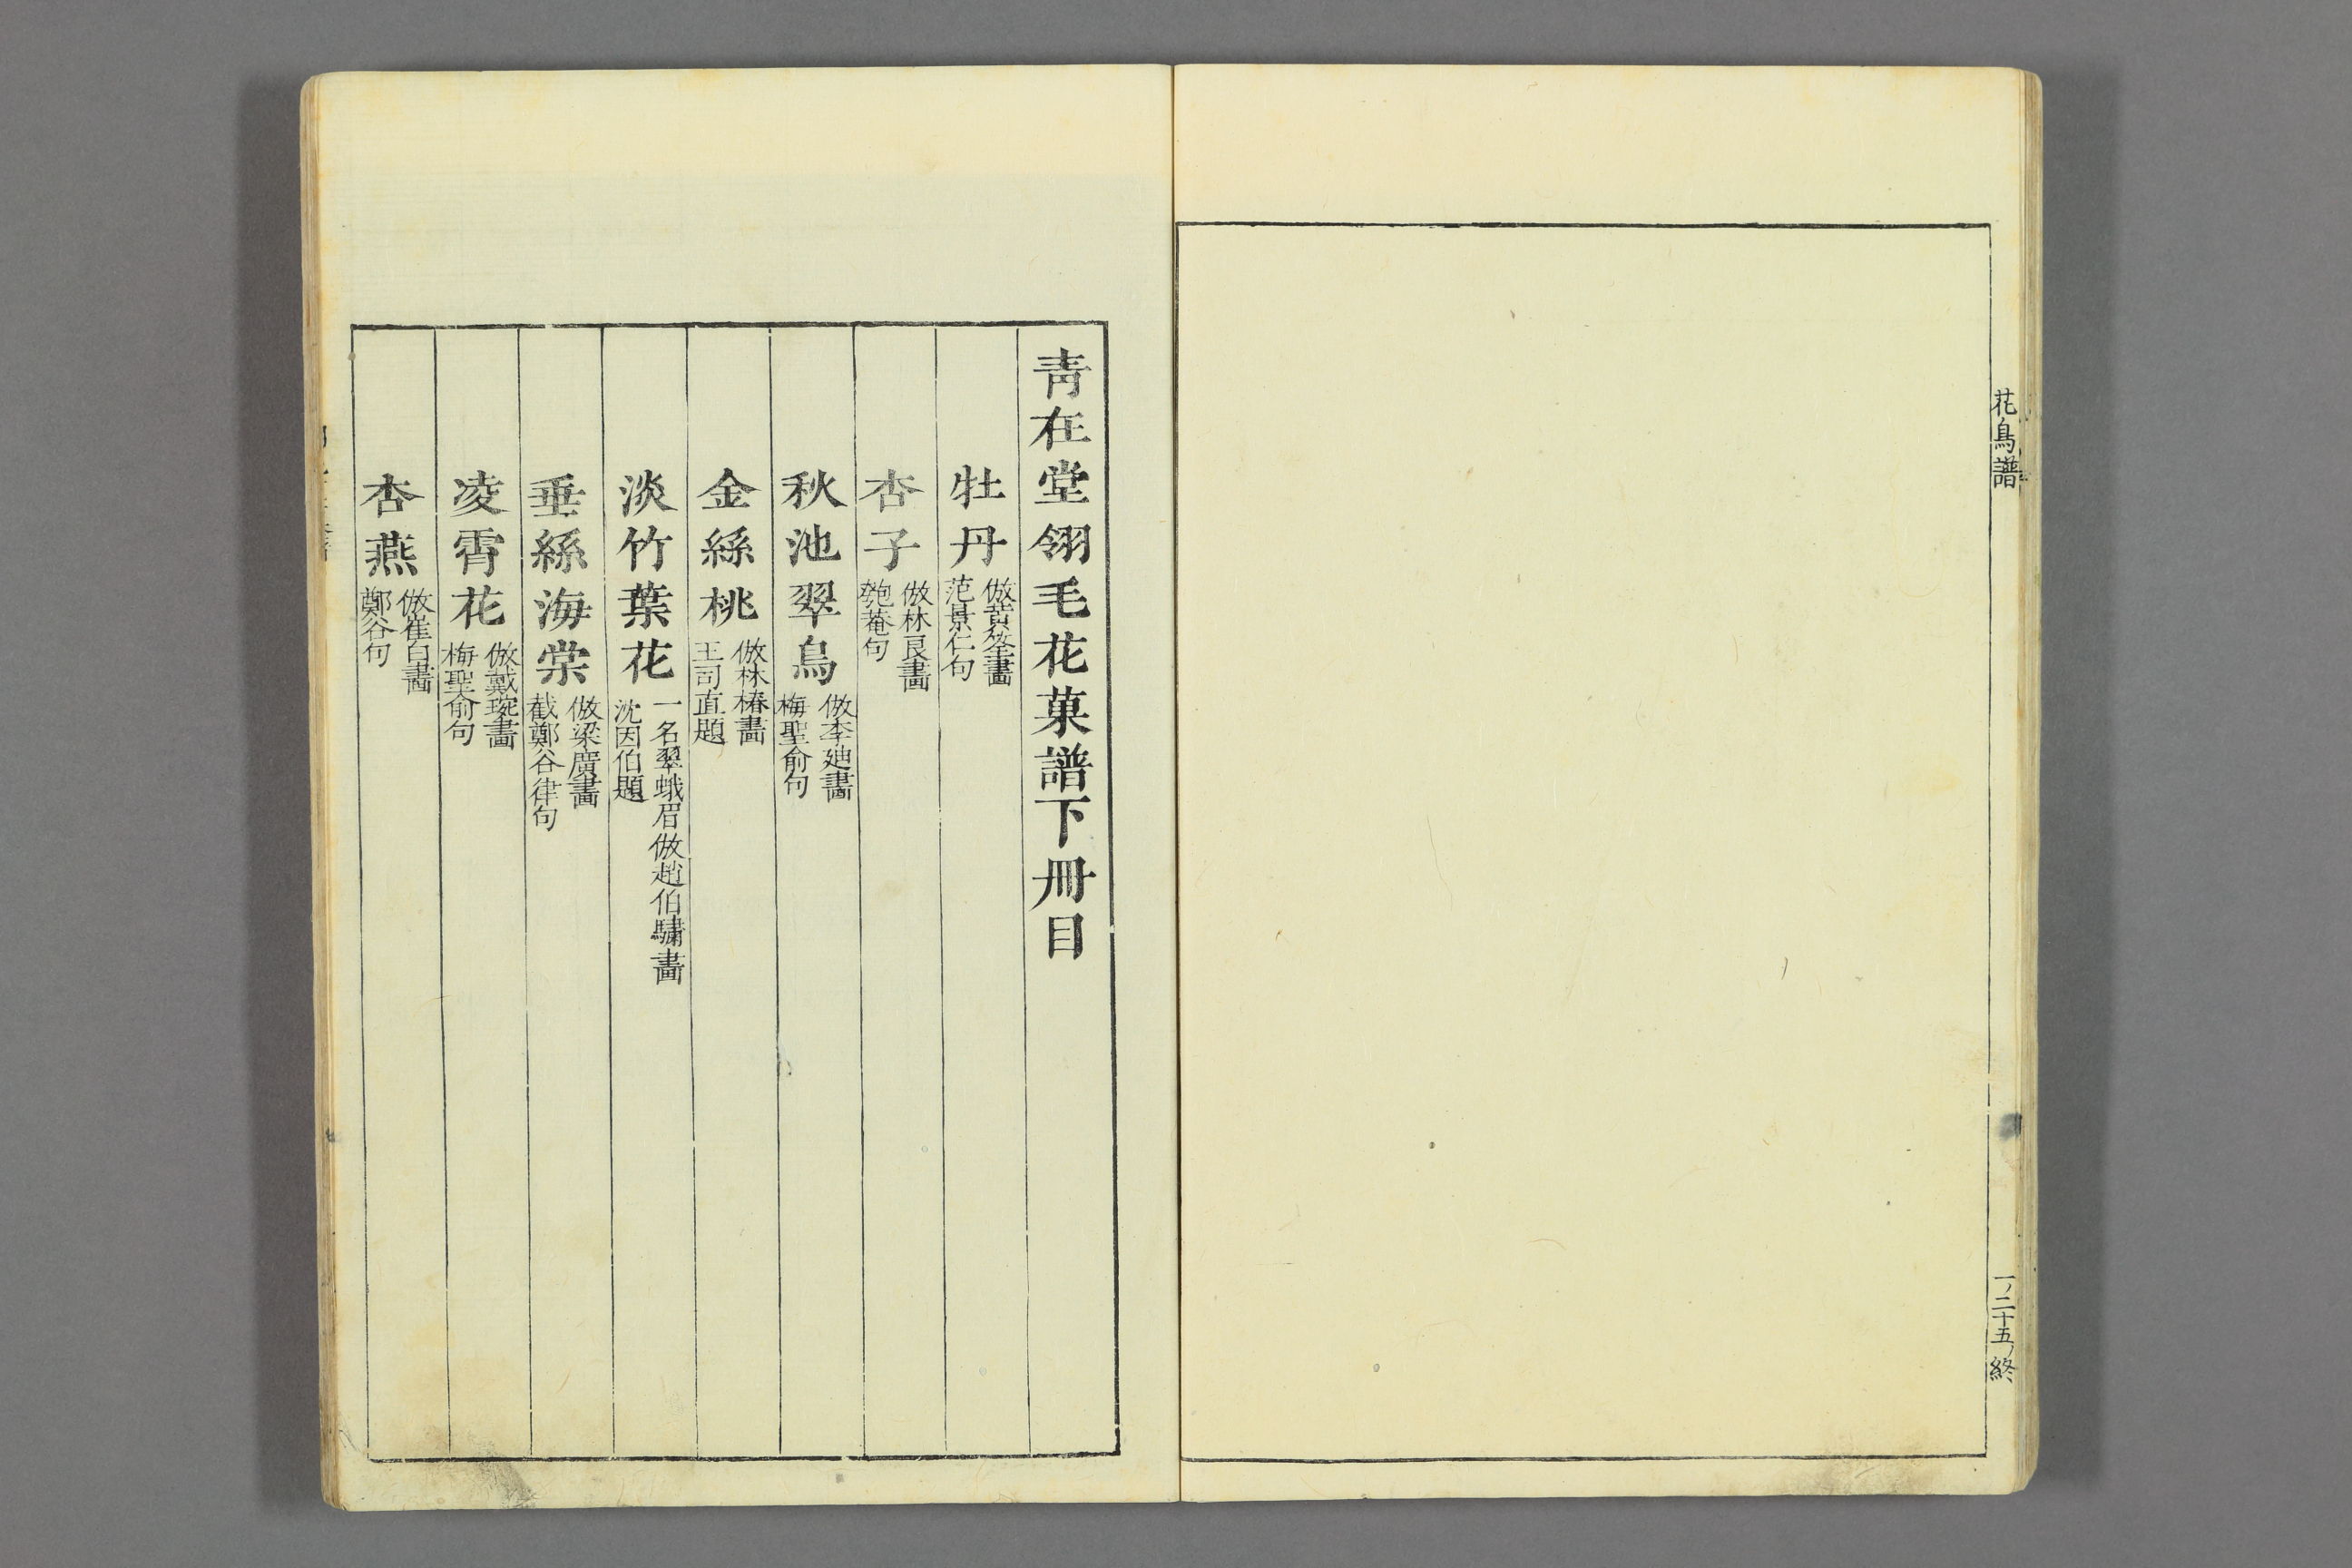 花鳥譜
一ノ二十五終
青在堂翎毛花菓譜下冊目
牡丹
倣黄筌畵
范景仁句
杏子
倣林良畵
匏菴句
秋池翠鳥
倣李廸畵
梅聖俞句
金絲桃
倣林椿畵
王司直題
淡竹葉花
一名翠蛾眉倣趙伯驌畵
沈因伯題
垂絲海棠
倣梁廣畵
截鄭谷律句
凌霄花
倣戴琬畵
梅聖俞句
杏燕
倣崔白畵
鄭谷句